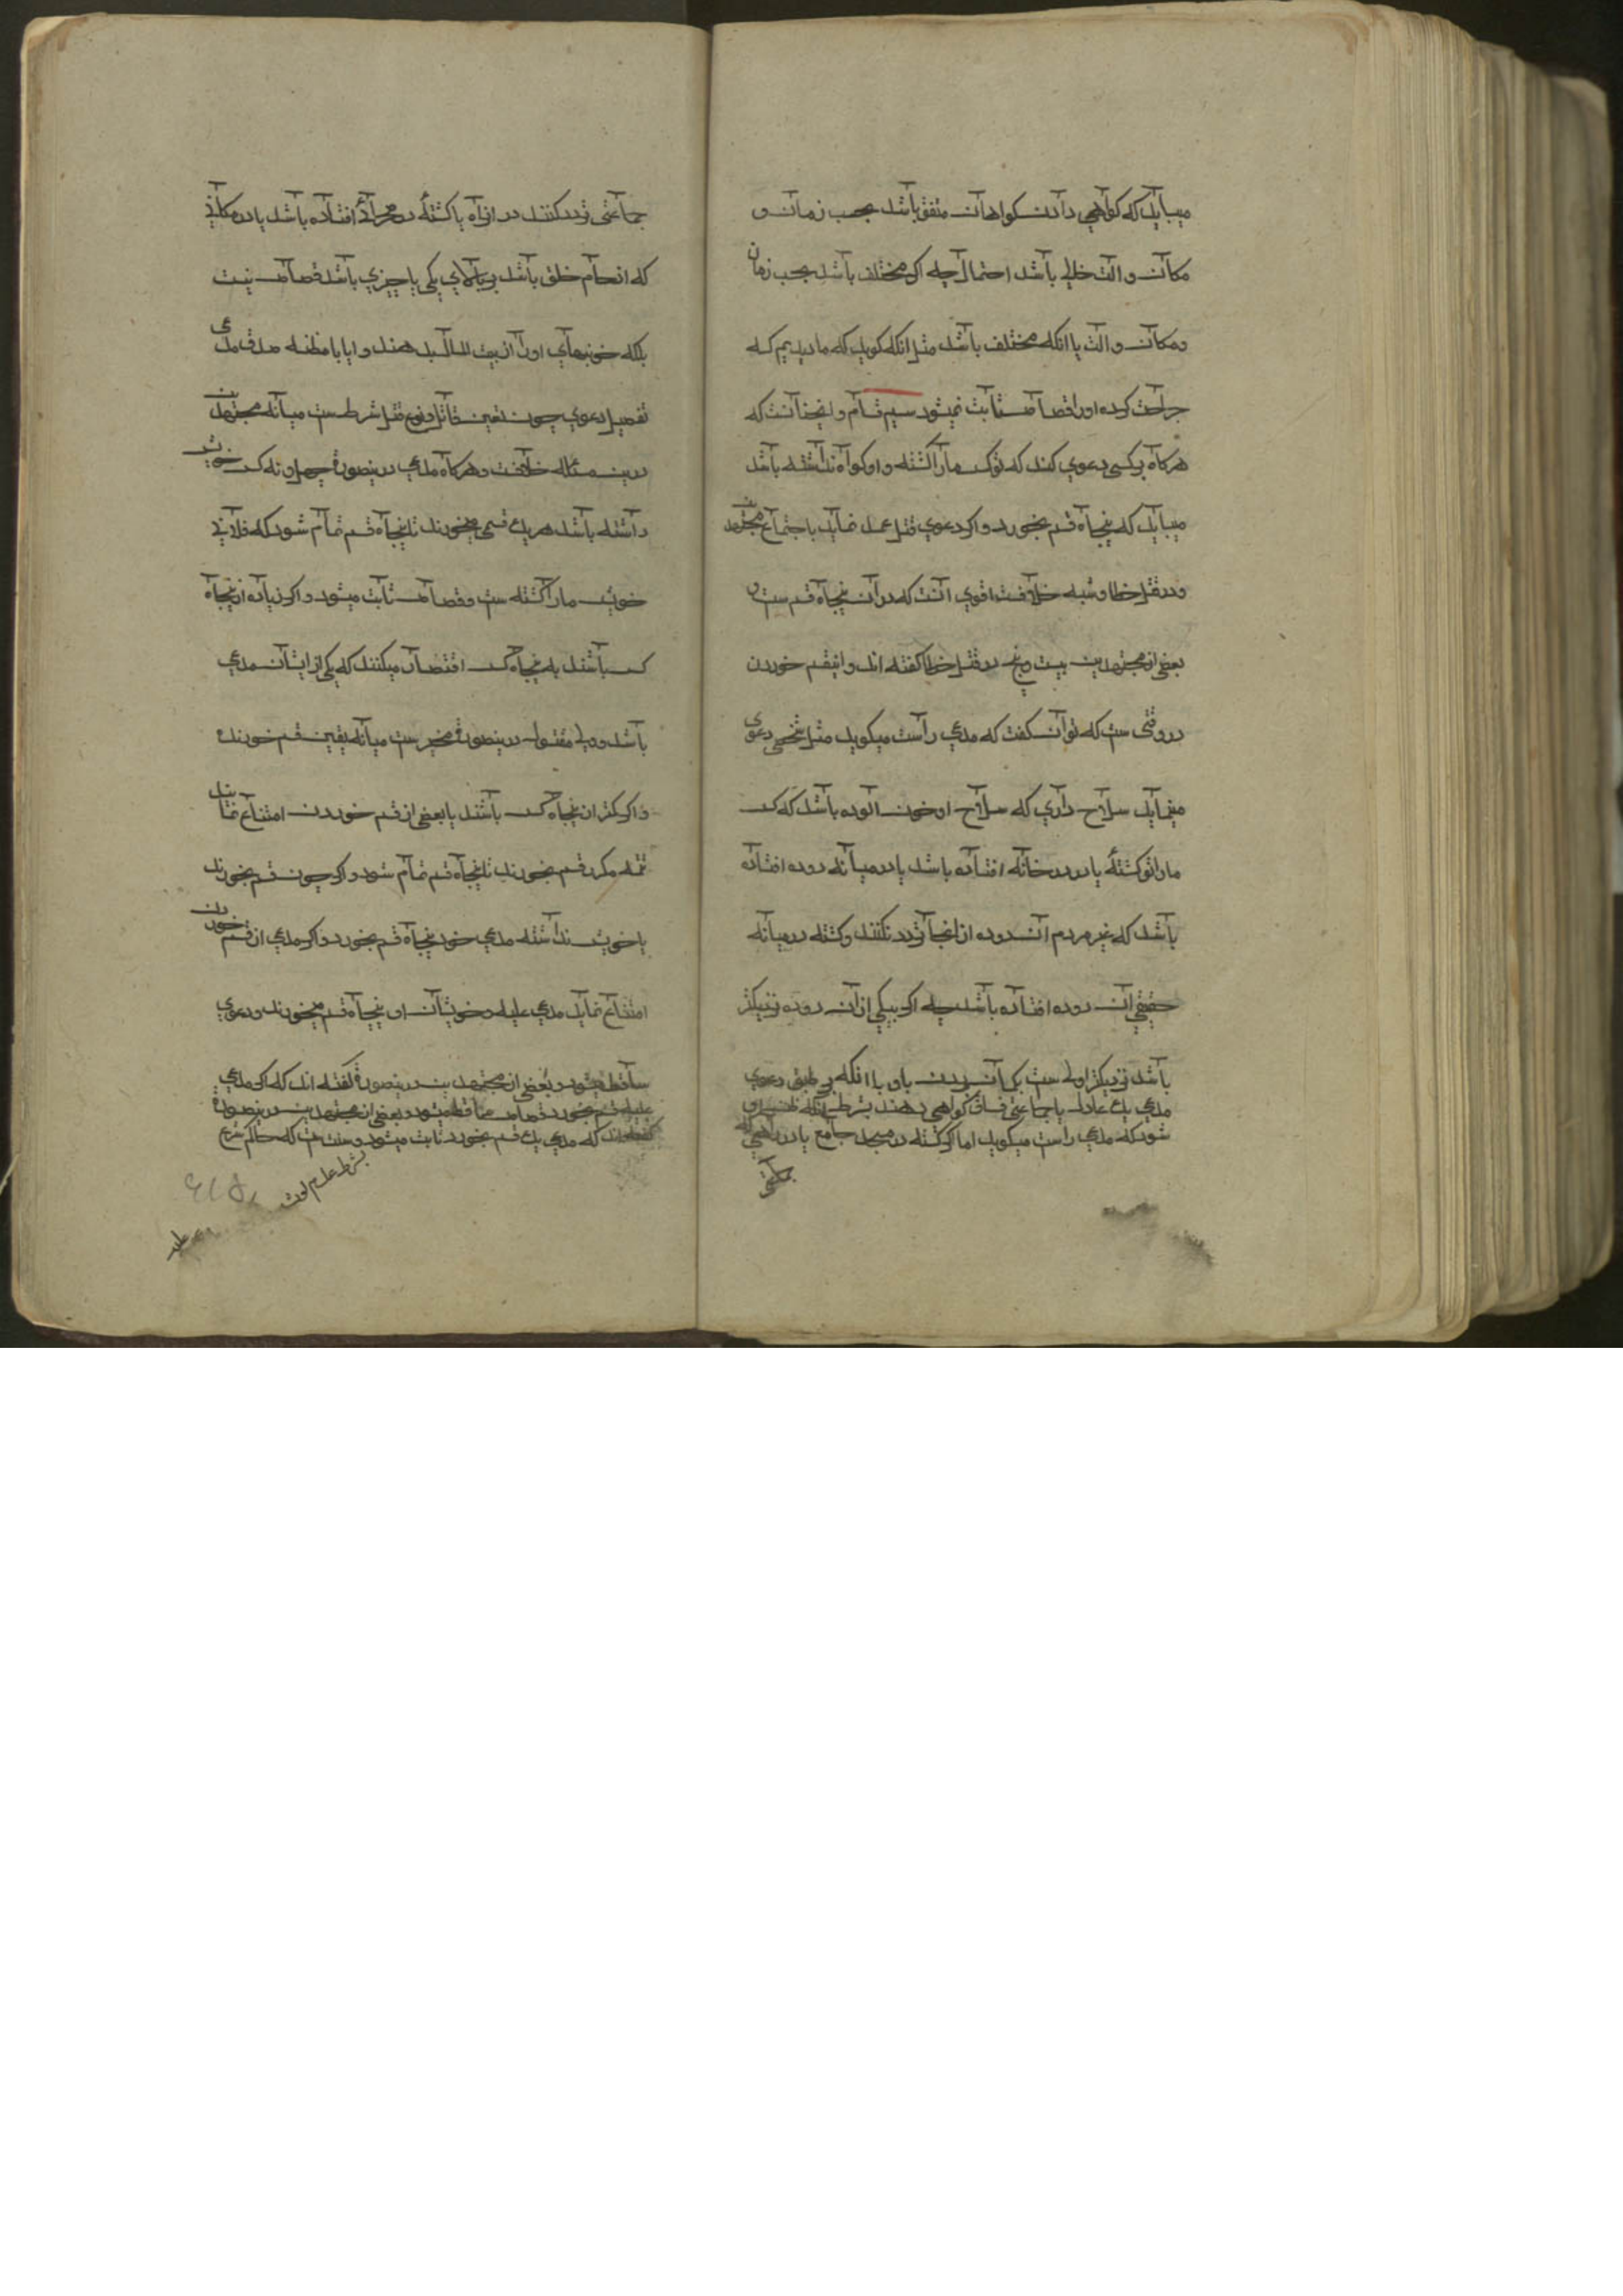 میباید که کواهی دادن کواهان متفق باشد بحسب زمان و
مکان و الت خلل باشد احتمال چه اکر مختلف باشد بحسب زمان
و مکان و الت یا انکه مختلف باشد مثل انکه کوید که ما دیدیم که
جراحت کرده او را قصاص ثابت نمیشود سیم قسام و اینجا آنست که
هرکاه بر کسی دعوی کند که توکس ما را کشته و او کواه نداشته باشد
میباید که پنجاه قسم بخورد و اکر دعوی قتل عمد نماید باجتماع مجتهدین
و در قتل خطا و شبه خلافست اقوی آنست که در آن پنجاه قسم ست و
بعضی از مجتهدین بیست و پنج در قتل خطا کفته اند و اینقسم خوردن
در وقتی ست که توان کفت که مدعی راست میکوید مثل شخصی دعوی
مینماید سلاح داری که سلاح او خون الوده باشد که کس
ما را تو کشتهٔ یا در در خانه افتاده باشد یا در میانه دوده افتاده
باشد که غیر مردم آن دوده از انجا تردد نکنند و کشته در میانه
حقیقی آن دوده افتاده باشد چه اکر بیکی از آن دوده نزدیکتر
باشد نزدیکتر اولی ست بکمان بردن باو یا انکه بر طبق دعوی
مدعی یک عادل یا جماعتی فساق کواهی دهند بشرطی انکه
شود که مدعی راست میکوید اما اکر کشته در مسجد جامع یا در راهی که
جماعتی تردد کنند در انراه یا کشتهٔ در صحرائی افتاده باشد یا در مکانی
که ازدحام خلق باشد بر بالای پلی یا چیزی باشد قصاص نیست
بلکه خونبهای او را از بیت المال بدهند و ایا با مظنه صدق مدعی
تفصیل دعوی چون تعین قاتل و نوع قتل شرطست میانه مجتهدین
درین مسئاله خلافست و هرکاه مدعی درینصورة چهل و نه کس خویش
داشته باشد هر یک قسمی میخورند تا پنجاه قسم تمام شود که فلانی
خویش ما را کشته ست و قصاص ثابت میشود و اکر زیاده از پنجاه
کس باشند به پنجاه کس اقتصار میکنند که یکی از ایشان مدعی
باشد و ولی مقتول درینصورة مخیر ست میانه تعین قسم خورنده
و اکر کمتر از پنجاه کس باشند یا بعضی از قسم خوردن امتناع نمایند
تتمه مکرر قسم بخورند تا پنجاه قسم تمام شود و اکر چون قسم بخورند
یا خویش نداشته مدعی خود پنجاه قسم بخورد و اکر مدعی از قسم خوردن
امتناع نماید مدعی علیه و خویشان او پنجاه قسم میخورند و دعوی
ساقط میشود و بعضی از مجتهدین درینصورة کفته اند که اکر مدعی
علیه قسم بخورد قصاص ساقط میشود و بعضی از مجتهدین درینصورة
کفته اند که مدعی یک قسم بخورد ثابت میشود و سنت ست که حاکم شرع
بشرط علم لوث